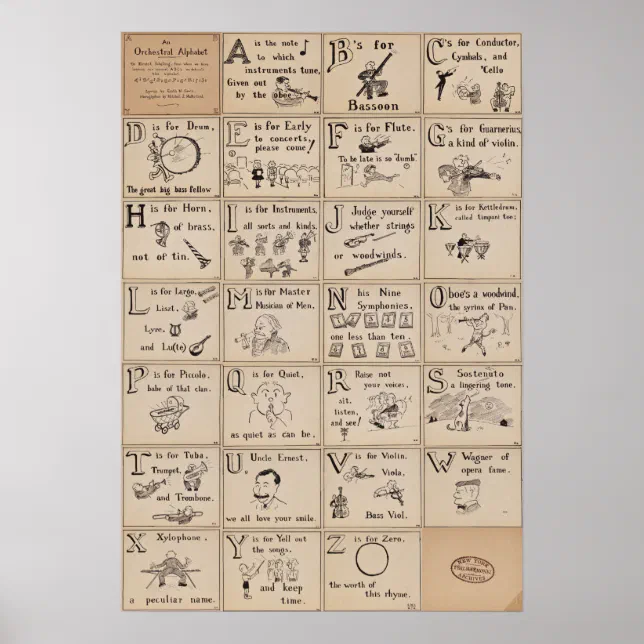 An
Orchestral Alphabet
A is the note
to which
instruments tune,
Given out
by the oboe.
B's for
Bassoon
C's for Conductor,
Cymbals, and
'Cello
D is for Drum,
The great big bass fellow
E is for Early
to concerts,
please come!
F is for Flute.
To be late is so "dumb".
G's for Guarnerius,
a kind of violin.
H is for Horn,
of brass,
not of tin.
I is for Instruments,
all sorts and kinds.
J Judge yourself
whether strings
or woodwinds.
K is for Kettledrum,
called timpani too;
L is for Largo,
Liszt,
Lyre,
and Lu(te)
M is for Master
Musician of Men,
N his Nine
Symphonies,
one less than ten.
Oboe's a woodwind,
the syrinx of Pan.
P is for Piccolo,
babe of that clan.
Q is for Quiet,
as quiet as can be.
Raise not
your voices,
sit,
listen,
and see!
Sostenuto
a lingering tone.
T is for Tuba,
Trumpet,
and Trombone.
Uncle Ernest,
we all love your smile.
V is for Violin,
Viola,
Bass Viol.
Wagner of
opera fame.
Xylophone,
a peculiar name.
Y is for Yell out
the songs,
and keep
time.
Z is for Zero,
the worth of
this rhyme.
NEW YORK
PHILHARMONIC
ARCHIVES